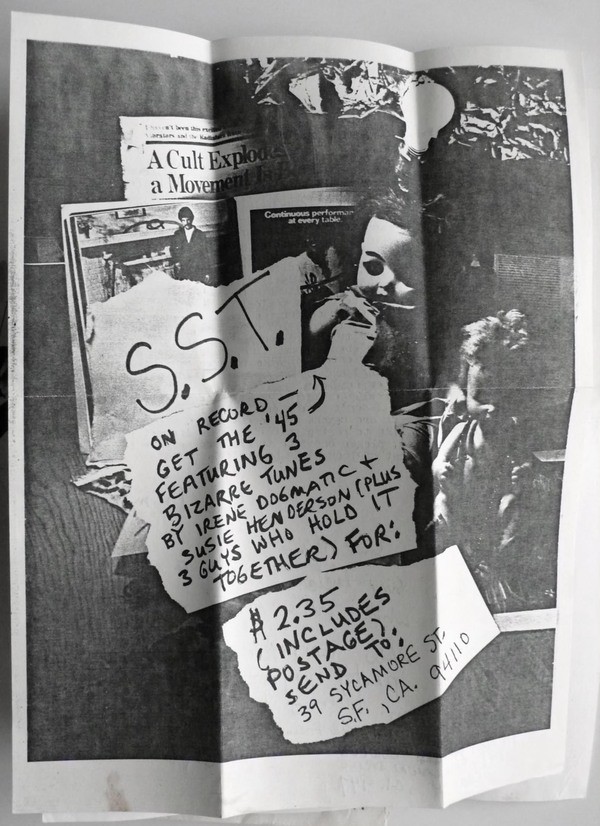 A Cult Explodes
a Movement
Continuous performan
at every table.
S.S.T.
ON RECORD, —
GET THE 45
FEATURING 3
BIZARRE TUNES
BY IRENE DOGMATIC +
SUSIE HENDERSON (PLUS
3 GUYS WHO HOLD IT
TOGETHER) FOR:
$2.35
(INCLUDES
POSTAGE)
SEND TO:
39 SYCAMORE ST.
S.F., CA. 94110